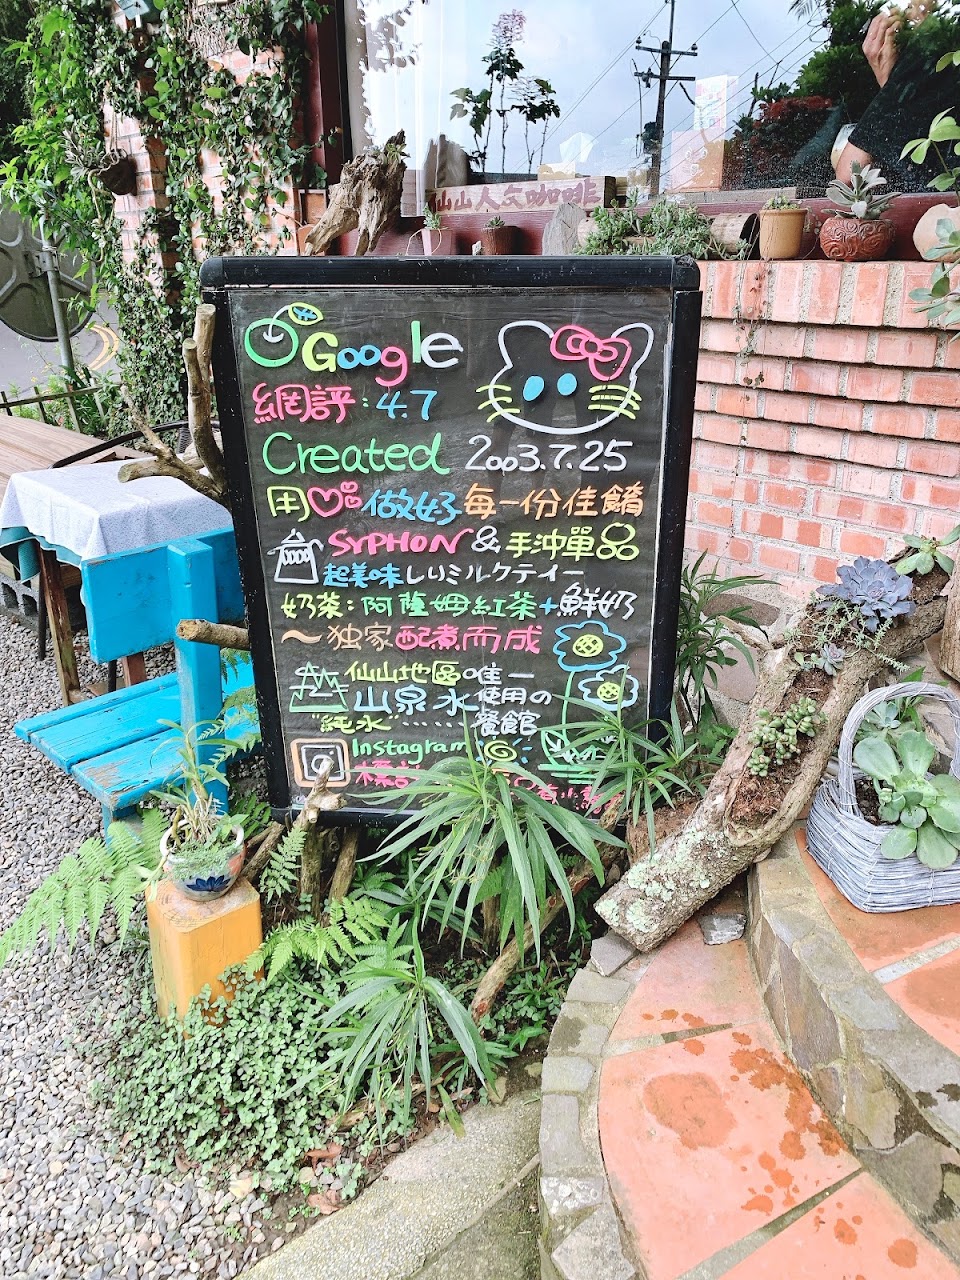 仙山人文咖啡
Google
網評：4.7
Created 2003.7.25
用心做好每一份佳餚
SYPHON & 手沖單品
超美味しいミルクティー
奶茶：阿薩姆紅茶+鮮奶
～独家配煮而成
仙山地區唯一
山泉水使用の
"純水"……餐館
Instagram
標記